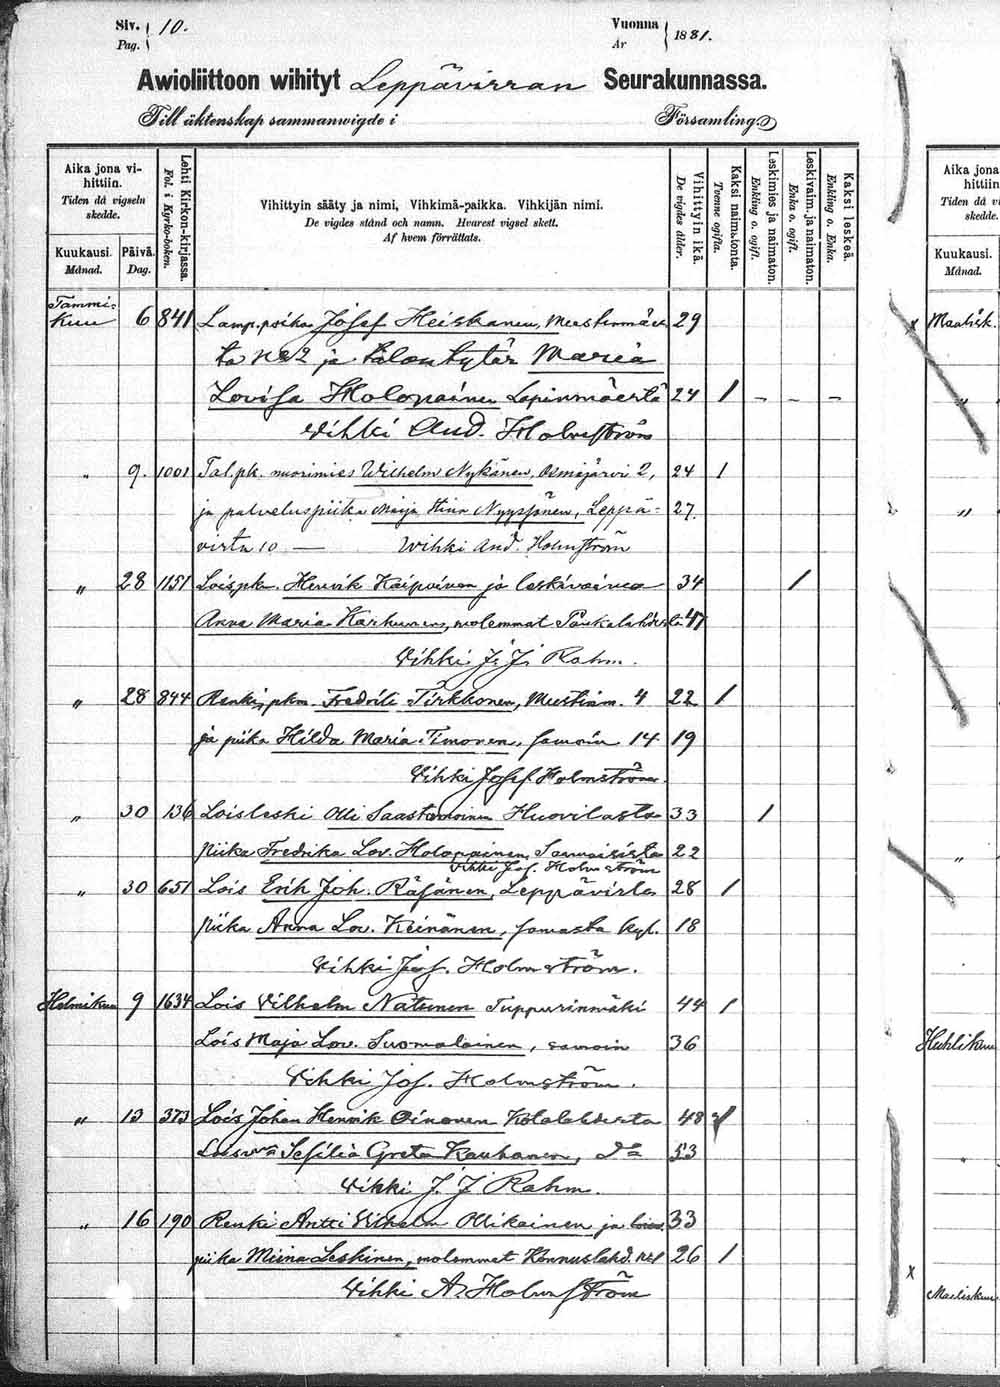 Siv. 10.
Pag.
Vuonna 1881.
År
Awioliittoon wihityt Leppävirran Seurakunnassa.
Till äktenskap sammanwigde i Församling.
Aika jona vi-
hittiin.
Tiden då vigseln
skedde.
Kuukausi.
Månad.
Päivä.
Dag.
Lehti Kirkon-kirjassa.
Fol. i Kyrko-boken.
Vihittyin sääty ja nimi, Vihkimä-paikka. Vihkijän nimi.
De vigdes stånd och namn. Hvarest vigsel skett.
Af hvem förrättats.
Vihittyin ikä.
De vigdes ålder.
Kaksi naimatonta.
Tvenne ogifta.
Leskimies ja naimaton.
Enkling o. ogift.
Leskivaim. ja naimaton.
Enka o. ogift.
Kaksi leskeä.
Enkling o. Enka.
Tammi-
kuu 6 841 Lamp. poika Josef Heiskanen, 29
ta No 2 ja talontytär Maria
Lovisa Holopainen Lapinmäestä 24 1 – – –
Vihki And. Holmström
" 9. 1001 Tal.pk. nuorimies Wilhelm Nykänen, Osmajärvi 2, 24 1
ja palveluspiika Maija Stina Nyyssönen, Leppä- 27
virta 10 — Wihki And. Holmström
" 28 1151 Lois.pk. Henrik Kaipainen ja leskivaimo 34 1
Anna Maria Karhunen, molemmat Paukalahdesta 47
Vihki J. J. Rahm.
" 28 844 Renki, pkm. Fredrik Tirkkonen, Mustinm. 4 22 1
ja piika Hilda Maria Timonen, samoin 14 19
Vihki Josef Holmström.
" 30 136 Loisleski Olli Saastamoinen Huovilasta 33 1
piika Fredrika Lov. Holopainen, Saamaisista 22
Vihki Jos. Holmström
" 30 651 Lois Erik Joh. Räsänen, Leppävirta 28 1
piika Anna Lov. Keinänen, samasta kyl. 18
Vihki Jos. Holmström.
Helmikuu 9 1634 Lois Vilhelm Natunen Tuppurinmäki 44 1
Lois Maja Lov. Suomalainen, samoin 36
Vihki Jos. Holmström.
" 13 373 Lois Johan Henrik Oinonen Kotalahdesta 48 1
Sesilia Greta Kauhanen, Do 53
Vihki J. J. Rahm.
" 16 190 Renki Antti Vilhelm Ollikainen ja 33
piika Miina Leskinen, molemmat Konnuslahd. No 1 26 1
Vihki A. Holmström
Aika jona
hittiin
Tiden då vi
skedde.
Kuukausi.
Månad.
x Maalisk.
"
"
"
"
Huhtikuu
"
x
Maaliskuu